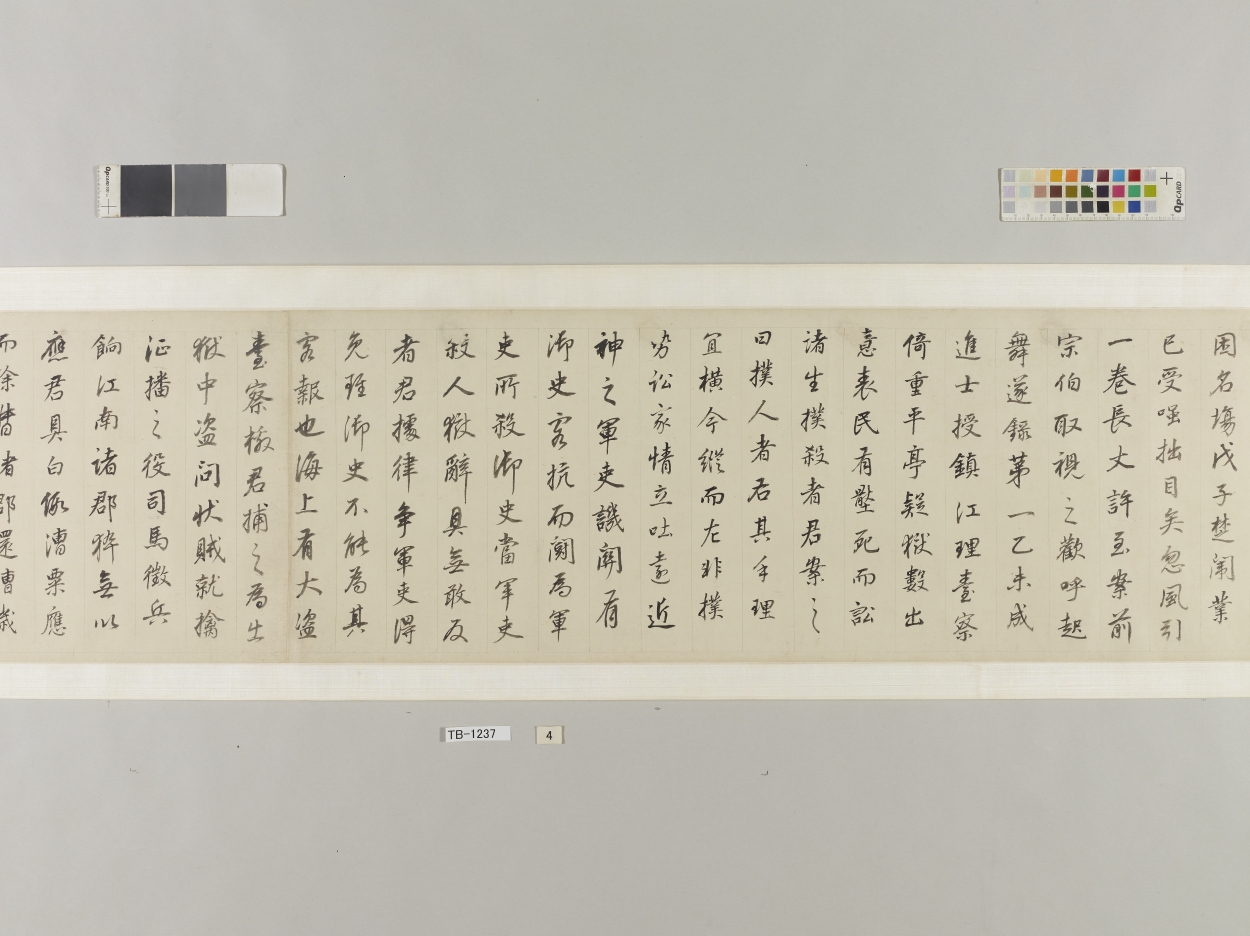 困名塲戊子楚闈業
已受嗤拙目矣忽風引
一卷長丈許至案前
宗伯取視之歡呼起
舞遂錄第一乙未成
進士授鎮江理臺察
倚重平亭疑獄數出
意表民有毆死而訟
諸生撲殺者君案之
曰撲人者右其手理
宜橫今縱而左非撲
也訟家情立吐遠近
神之軍吏譏關有
御史客抗而鬨為軍
吏所殺御史當軍吏
殺人獄辭具無敢反
者君據律爭軍吏得
免雖御史不能為其
客報也海上有大盜
臺察檄君捕之為出
獄中盜問状賊就擒
征播之役司馬徵兵
餉江南諸郡猝無以
應君具白假漕粟應
而徐 者郡還漕歲
TB-1237
4